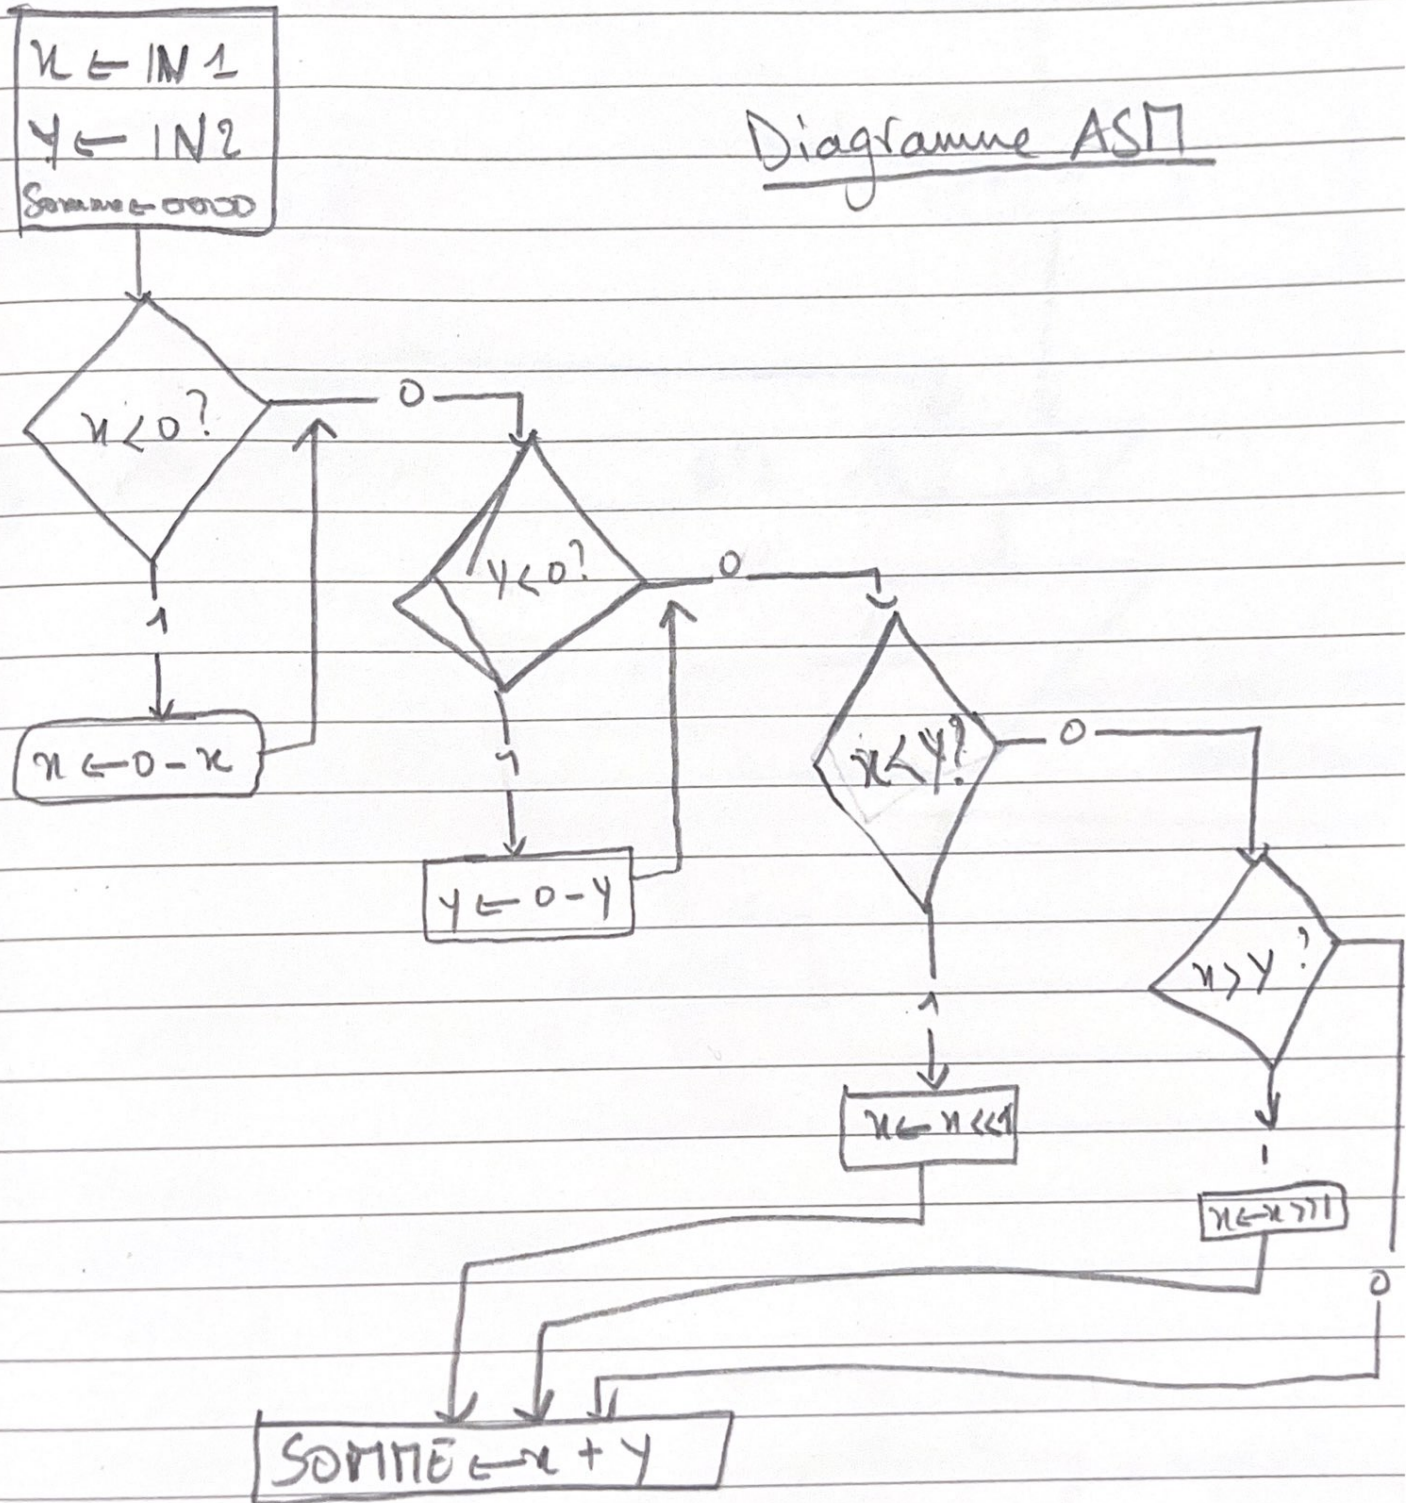 x ← IN1
y ← IN2
Somme ← 0000
Diagramme ASM
x < 0 ?
0
1
x ← 0 - x
y < 0 ?
0
1
y ← 0 - y
x < y ?
0
1
x ← x << 1
x > y ?
1
x ← x >> 1
0
SOMME ← x + y